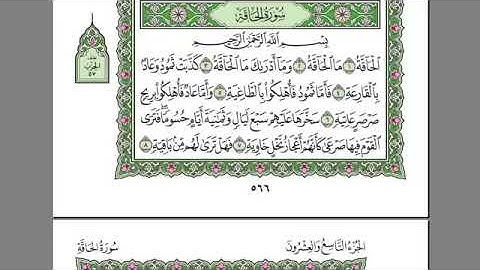 سُورَةُ الحَاقَّةِ
بِسْمِ اللَّهِ الرَّحْمَٰنِ الرَّحِيمِ
الْحَاقَّةُ ١ مَا الْحَاقَّةُ ٢ وَمَا أَدْرَاكَ مَا الْحَاقَّةُ ٣ كَذَّبَتْ ثَمُودُ وَعَادٌ
بِالْقَارِعَةِ ٤ فَأَمَّا ثَمُودُ فَأُهْلِكُوا بِالطَّاغِيَةِ ٥ وَأَمَّا عَادٌ فَأُهْلِكُوا بِرِيحٍ
صَرْصَرٍ عَاتِيَةٍ ٦ سَخَّرَهَا عَلَيْهِمْ سَبْعَ لَيَالٍ وَثَمَانِيَةَ أَيَّامٍ حُسُومًا فَتَرَى
الْقَوْمَ فِيهَا صَرْعَىٰ كَأَنَّهُمْ أَعْجَازُ نَخْلٍ خَاوِيَةٍ ٧ فَهَلْ تَرَىٰ لَهُم مِّن بَاقِيَةٍ ٨
الحِزْب
٥٧
٥٦٦
الجُزْءُ التَّاسِعُ وَالعِشْرُونَ
سُورَةُ الحَاقَّةِ